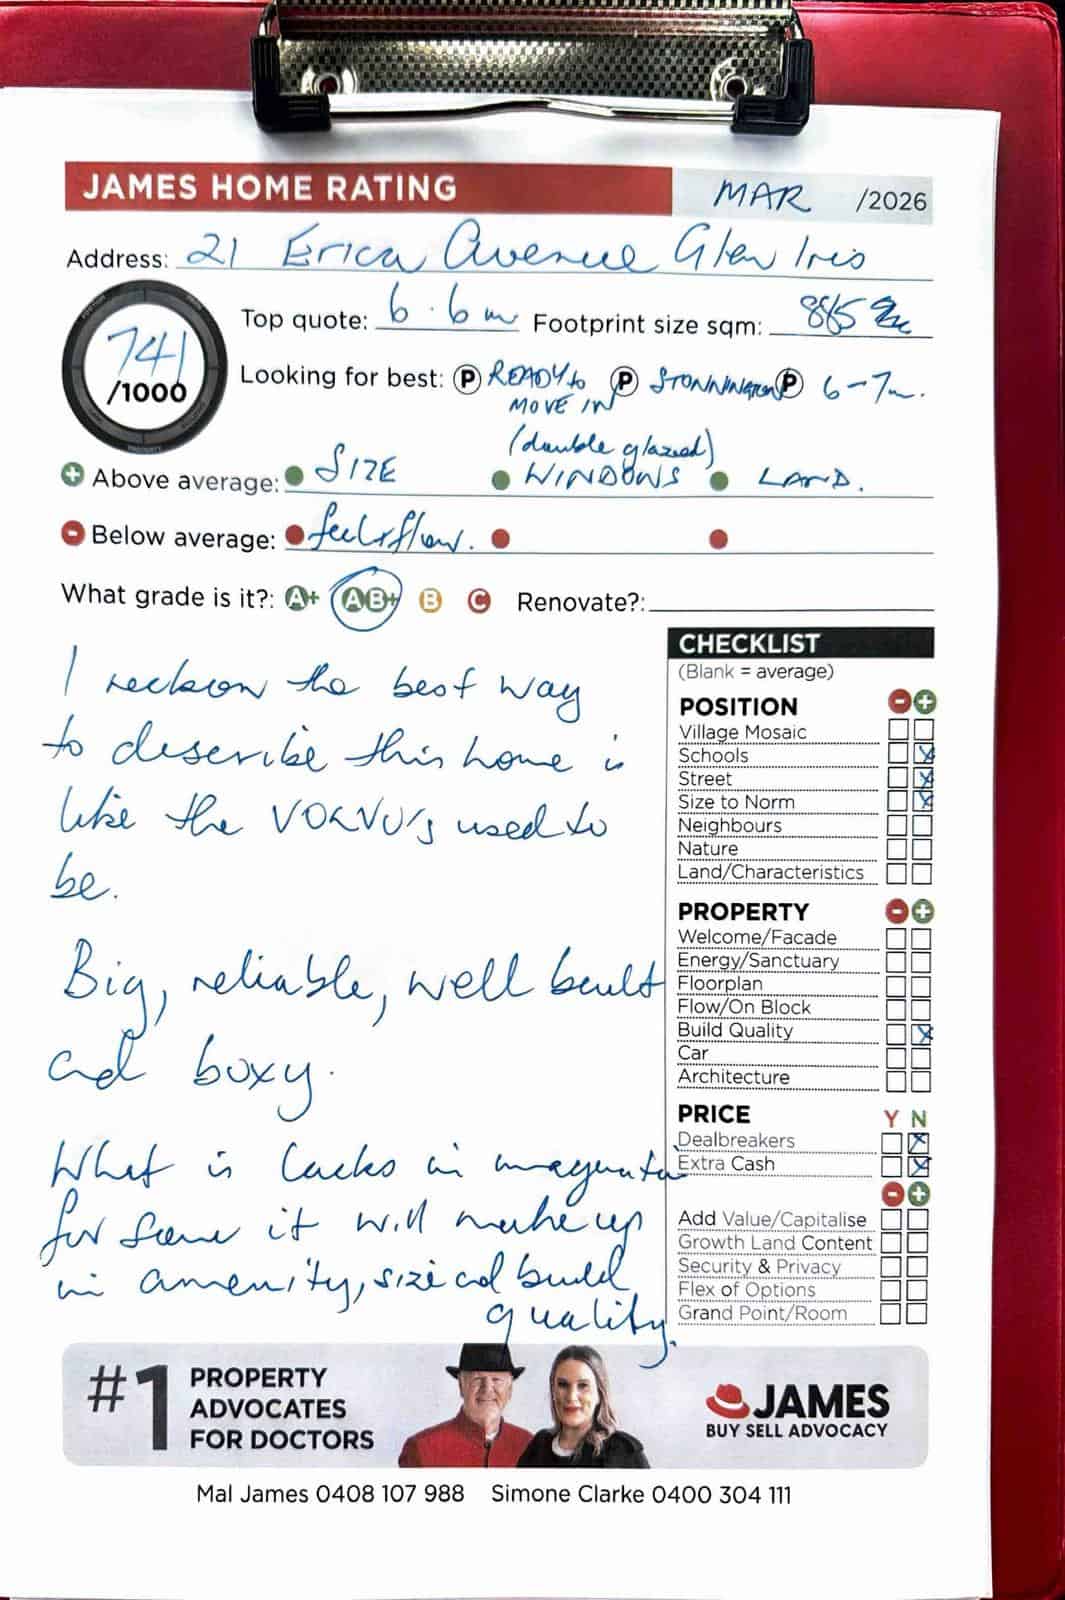 JAMES HOME RATING MAR /2026
Address: 21 Erica Avenue Glen Iris
741
/1000
Top quote: 6.6m Footprint size sqm: 885
Looking for best: P READY to MOVE IN P STONNINGTON P 6-7m.
(double glazed)
+ Above average: SIZE WINDOWS LAND.
- Below average: feel+flow.
What grade is it?: A+ AB+ B C Renovate?:
I reckon the best way
to describe this home is
like the VOLVO's used to
be.
Big, reliable, well built
and boxy.
What is lacks in magenta
for some it will make up
in amenity, size and build
quality.
CHECKLIST
(Blank = average)
POSITION - +
Village Mosaic
Schools X
Street X
Size to Norm X
Neighbours
Nature
Land/Characteristics
PROPERTY - +
Welcome/Facade
Energy/Sanctuary
Floorplan
Flow/On Block
Build Quality X
Car
Architecture
PRICE Y N
Dealbreakers X
Extra Cash X
- +
Add Value/Capitalise
Growth Land Content
Security & Privacy
Flex of Options
Grand Point/Room
#1 PROPERTY
ADVOCATES
FOR DOCTORS
JAMES
BUY SELL ADVOCACY
Mal James 0408 107 988 Simone Clarke 0400 304 111